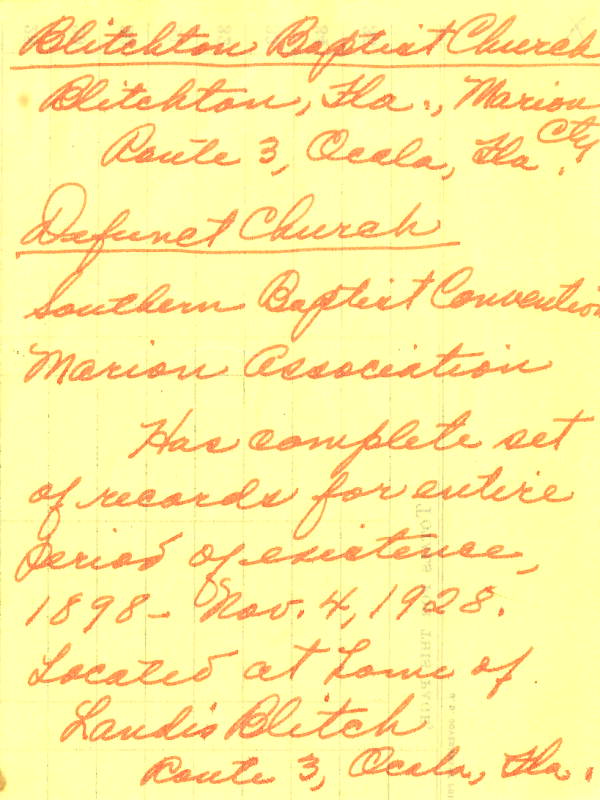 Blitchton Baptist Church
Blitchton, Fla., Marion
Cty
Route 3, Ocala, Fla.
Defunct Church
Southern Baptist Convention
Marion Association
Has complete set
of records for entire
period of existence,
1898 - Nov. 4, 1928.
Located at home of
Landis Blitch
Route 3, Ocala, Fla.